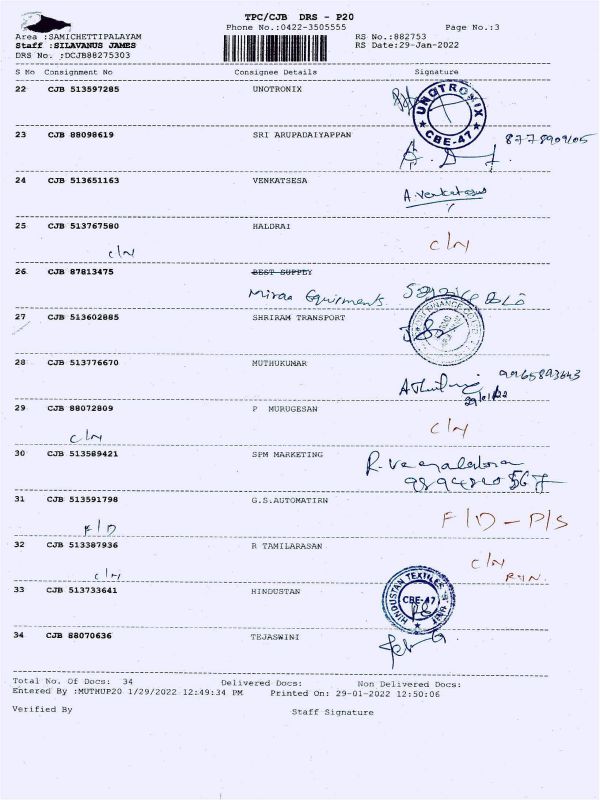 TPC/CJB DRS - P20
Phone No.:0422-3505555 Page No.:3
Area :SAMICHETTIPALAYAM RS No.:882753
Staff :SILAVANUS JAMES RS Date:29-Jan-2022
DRS No. :DCJB88275303
S No Consignment No Consignee Details Signature
22 CJB 513597285 UNOTRONIX
UNOTRONIX
★ CBE-47 ★
23 CJB 88098619 SRI ARUPADAIYAPPAN 8778909105
24 CJB 513651163 VENKATSESA
A. Venkatesus
25 CJB 513767580 HALDRAI
C/N C/N
26 CJB 87813475 BEST SUPPLY
Equirments.
27 CJB 513602885 SHRIRAM TRANSPORT
28 CJB 513776670 MUTHUKUMAR 9965893643
29/01/22
29 CJB 88072809 P MURUGESAN
C/N C/N
30 CJB 513589421 SPM MARKETING
31 CJB 513591798 G.S.AUTOMATIRN
F/D F/D - P/S
32 CJB 513387936 R TAMILARASAN
C/N C/N
33 CJB 513733641 HINDUSTAN
HINDUSTAN TEXTILES
CBE-47
34 CJB 88070636 TEJASWINI
Total No. Of Docs: 34 Delivered Docs: Non Delivered Docs:
Entered By :MUTHUP20 1/29/2022 12:49:34 PM Printed On: 29-01-2022 12:50:06
Verified By Staff Signature